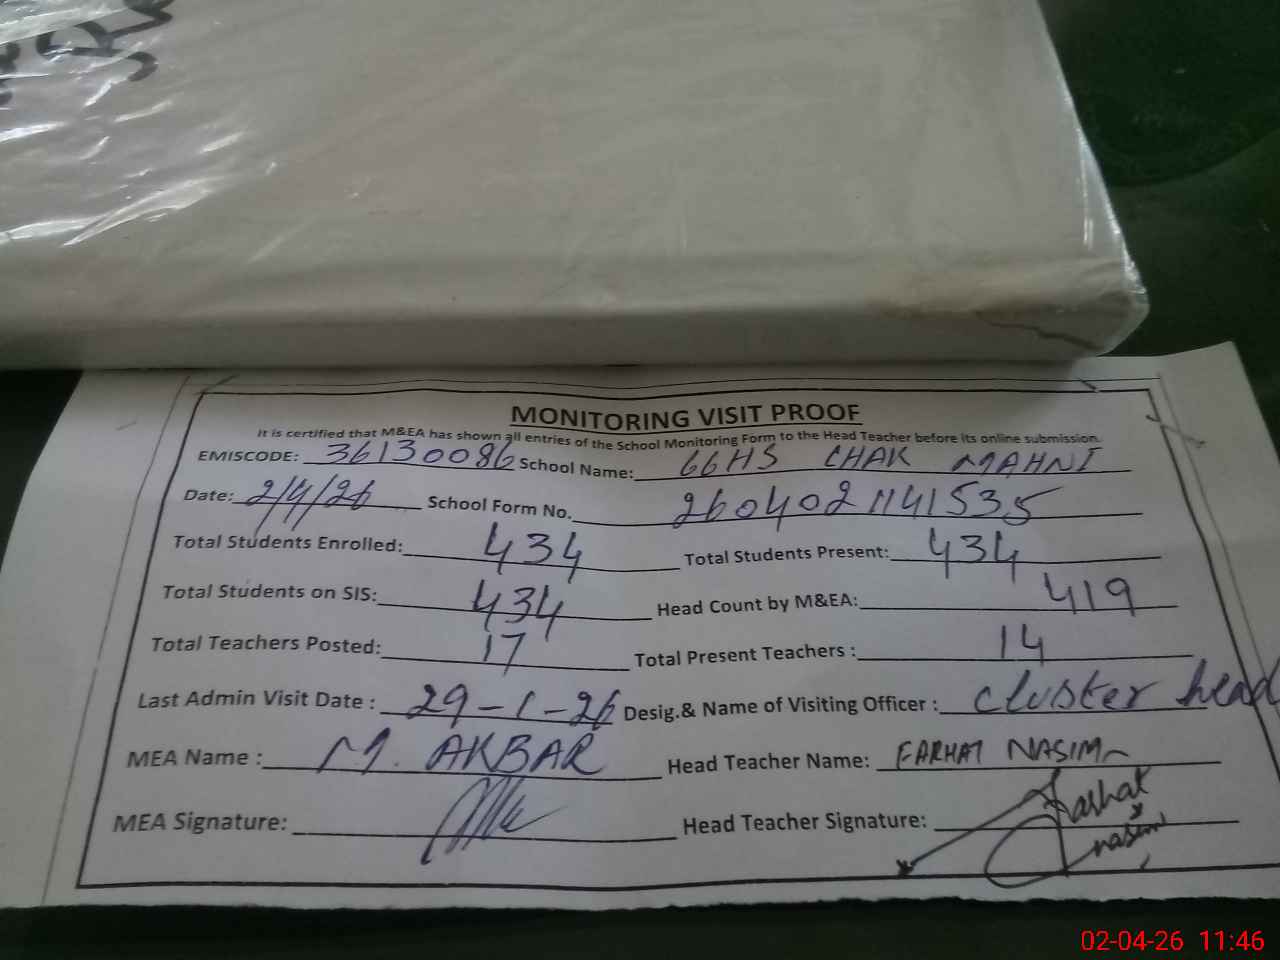 MONITORING VISIT PROOF
It is certified that M&EA has shown all entries of the School Monitoring Form to the Head Teacher before its online submission.
EMISCODE: 36130086 School Name: GGHS CHAK MAHNI
Date: 2/4/26 School Form No. 2604021141535
Total Students Enrolled: 434 Total Students Present: 434
Total Students on SIS: 434 Head Count by M&EA: 419
Total Teachers Posted: 17 Total Present Teachers : 14
Last Admin Visit Date : 29-1-26 Desig.& Name of Visiting Officer : cluster head
MEA Name : M. AKBAR Head Teacher Name: FARHAT NASIM
MEA Signature: Head Teacher Signature: Farhat
nasim
02-04-26 11:46